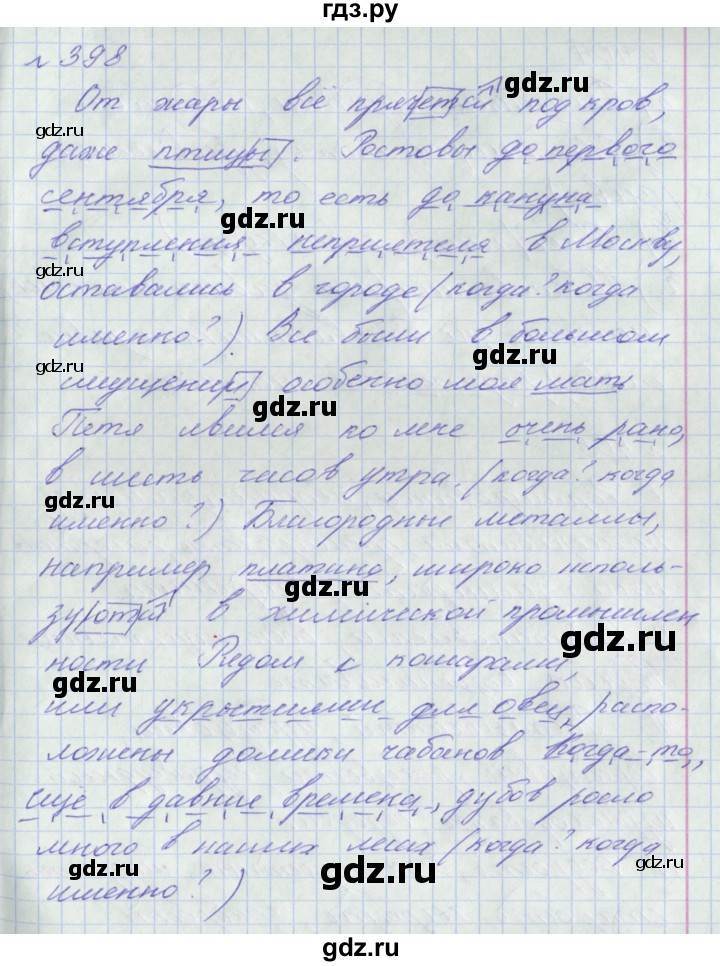 гдз.ру
№ 398
От жары всё прячется под кров,
даже птицы. Ростовы до первого
сентября, то есть до кануна
вступления неприятеля в Москву,
оставались в городе (когда? когда
именно?) Все были в большом
смущении особенно моя мать
Петя явился ко мне очень рано,
в шесть часов утра. (когда? когда
именно?) Благородные металлы,
например платина, широко исполь-
зуются в химической промышлен
ности Рядом с кошарами,
или укрытиями для овец, распо-
ложены домики чабанов Когда-то,
ещё в давние времена, дубов росло
много в наших лесах (когда? когда
именно?)
gdz.ru
gdz.ru
gdz.ru
gdz.ru
gdz.ru
gdz.ru
gdz.ru
gdz.ru
gdz.ru
gdz.ru
gdz.ru
gdz.ru
gdz.ru
gdz.ru
gdz.ru
gdz.ru
gdz.ru